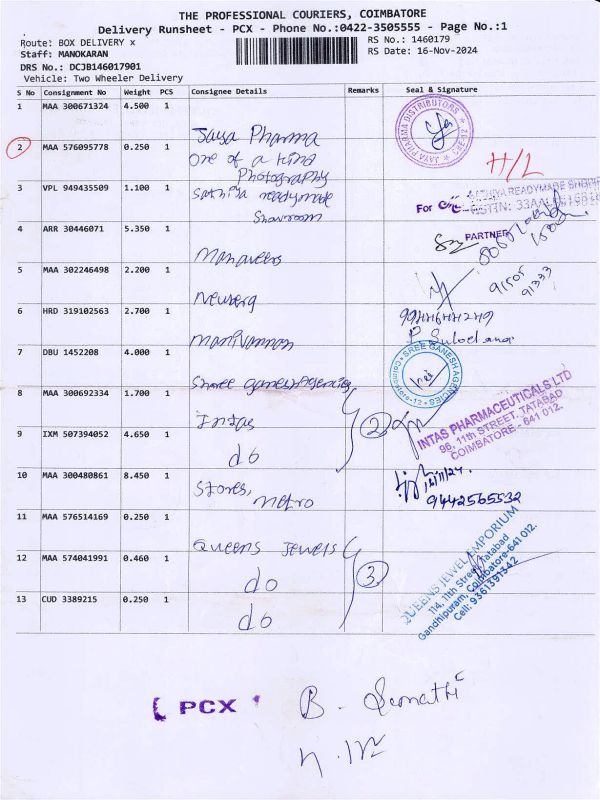 THE PROFESSIONAL COURIERS, COIMBATORE
Delivery Runsheet - PCX - Phone No.:0422-3505555 - Page No.:1
Route: BOX DELIVERY x
RS No.: 1460179
Staff: MANOKARAN
RS Date: 16-Nov-2024
DRS No.: DCJB146017901
Vehicle: Two Wheeler Delivery
S No Consignment No Weight PCS Consignee Details Remarks Seal & Signature
1 MAA 300671324 4.500 1 Jaya Pharma
JAYA PHARMA DISTRIBUTORS
2 MAA 576095778 0.250 1 One of a Kind Photography
H/L
3 VPL 949435509 1.100 1 Sathiya readymade Showroom
For
PARTNER
4 ARR 30446071 5.350 1 Mahaveers
5 MAA 302246498 2.200 1 Neuberg
91505
91333
6 HRD 319102563 2.700 1 Manivannan
7 DBU 1452208 4.000 1 Shree ganesh Agencies
SREE GANESH AGENCIES
Coimbatore-12
8 MAA 300692334 1.700 1 Intas
2
INTAS PHARMACEUTICALS LTD
96, 11th STREET, TATABAD
COIMBATORE - 641 012.
9 IXM 507394052 4.650 1 do
10 MAA 300480861 8.450 1 Stores, metro
9442565532
11 MAA 576514169 0.250 1 Queens Jewels
12 MAA 574041991 0.460 1 do
3
QUEENS JEWEL EMPORIUM
114, 11th Street, Tatabad
Gandhipuram, Coimbatore-641 012.
Cell: 9361391342
13 CUD 3389215 0.250 1 do
PCX